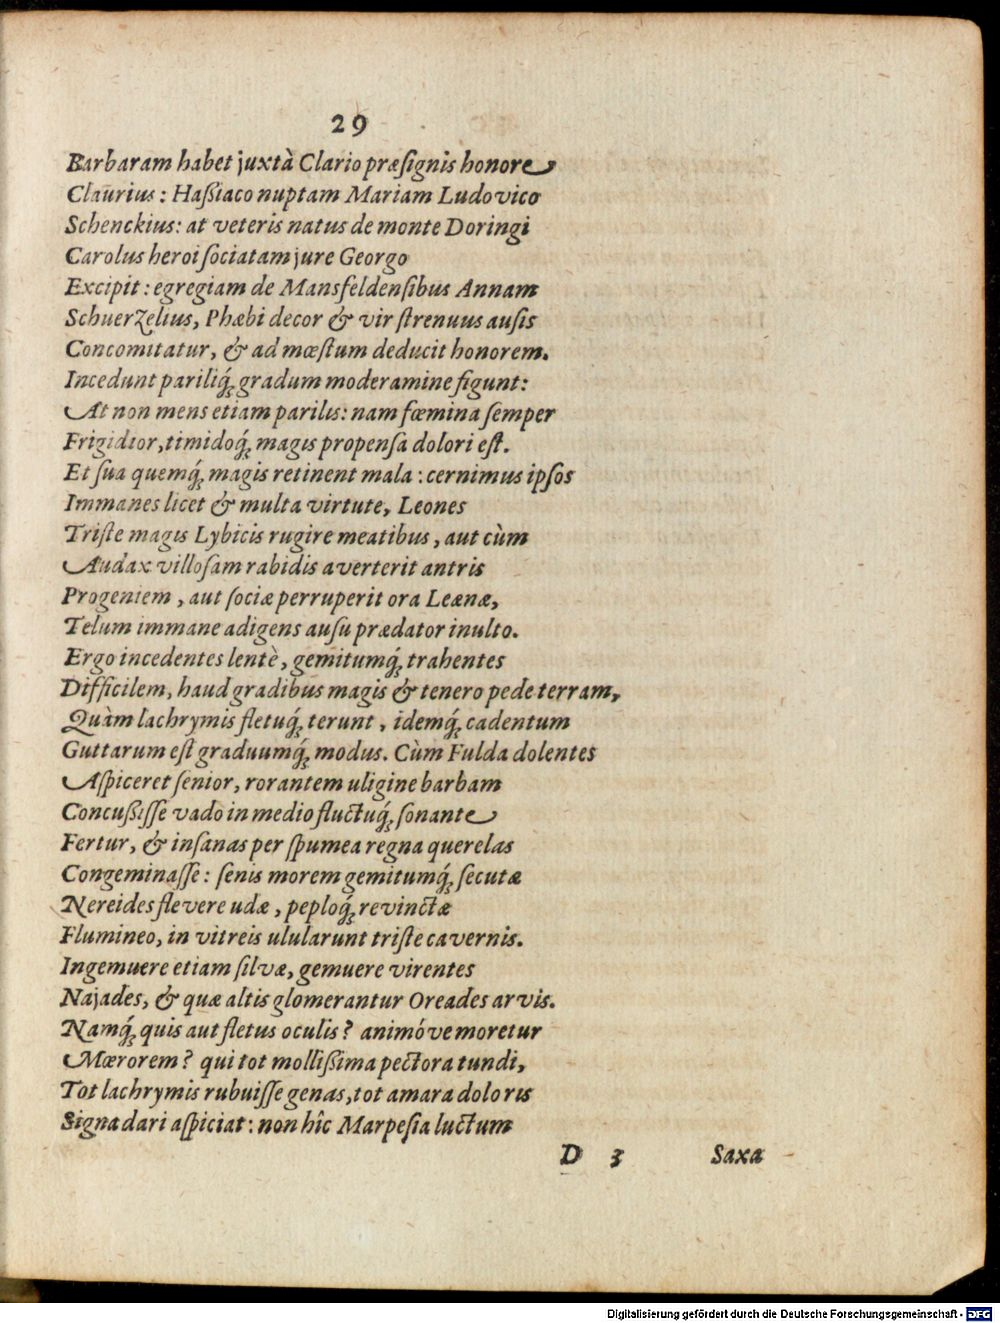 29
Barbaram habet juxtà Clario præſignis honore
Claurius: Haßiaco nuptam Mariam Ludovico
Schenckius: at veteris natus de monte Doringi
Carolus heroi ſociatam jure Georgo
Excipit: egregiam de Mansfeldenſibus Annam
Schuerzelius, Phæbi decor & vir ſtrenuus auſis
Concomitatur, & ad mœſtum deducit honorem.
Incedunt pariliq́ꝫ gradum moderamine figunt:
At non mens etiam parilis: nam fœmina ſemper
Frigidior, timidoq́ꝫ magis propenſa dolori eſt.
Et ſua quemq́ꝫ magis retinent mala: cernimus ipſos
Immanes licet & multa virtute, Leones
Triſte magis Lybicis rugire meatibus, aut cùm
Audax villoſam rabidis averterit antris
Progeniem, aut ſociæ perruperit ora Leænæ,
Telum immane adigens auſu prædator inulto.
Ergo incedentes lentè, gemitumq́ꝫ trahentes
Difficilem, haud gradibus magis & tenero pede terram,
Quàm lachrymis fletuq́ꝫ terunt, idemq́ꝫ cadentum
Guttarum eſt graduumq́ꝫ modus. Cùm Fulda dolentes
Aſpiceret ſenior, rorantem uligine barbam
Concußiſſe vado in medio fluctuq́ꝫ ſonante
Fertur, & inſanas per ſpumea regna querelas
Congeminaſſe: ſenis morem gemitumq́ꝫ ſecutæ
Nereides flevere udæ, peploq́ꝫ revinctæ
Flumineo, in vitreis ulularunt triſte cavernis.
Ingemuere etiam ſilvæ, gemuere virentes
Najades, & quæ altis glomerantur Oreades arvis.
Namq́ꝫ quis aut fletus oculis? animóve moretur
Mœrorem? qui tot mollißima pectora tundi,
Tot lachrymis rubuiſſe genas, tot amara doloris
Signa dari aſpiciat: non hîc Marpeſia luctum
D 3 Saxa
Digitalisierung gefördert durch die Deutsche Forschungsgemeinschaft - DFG